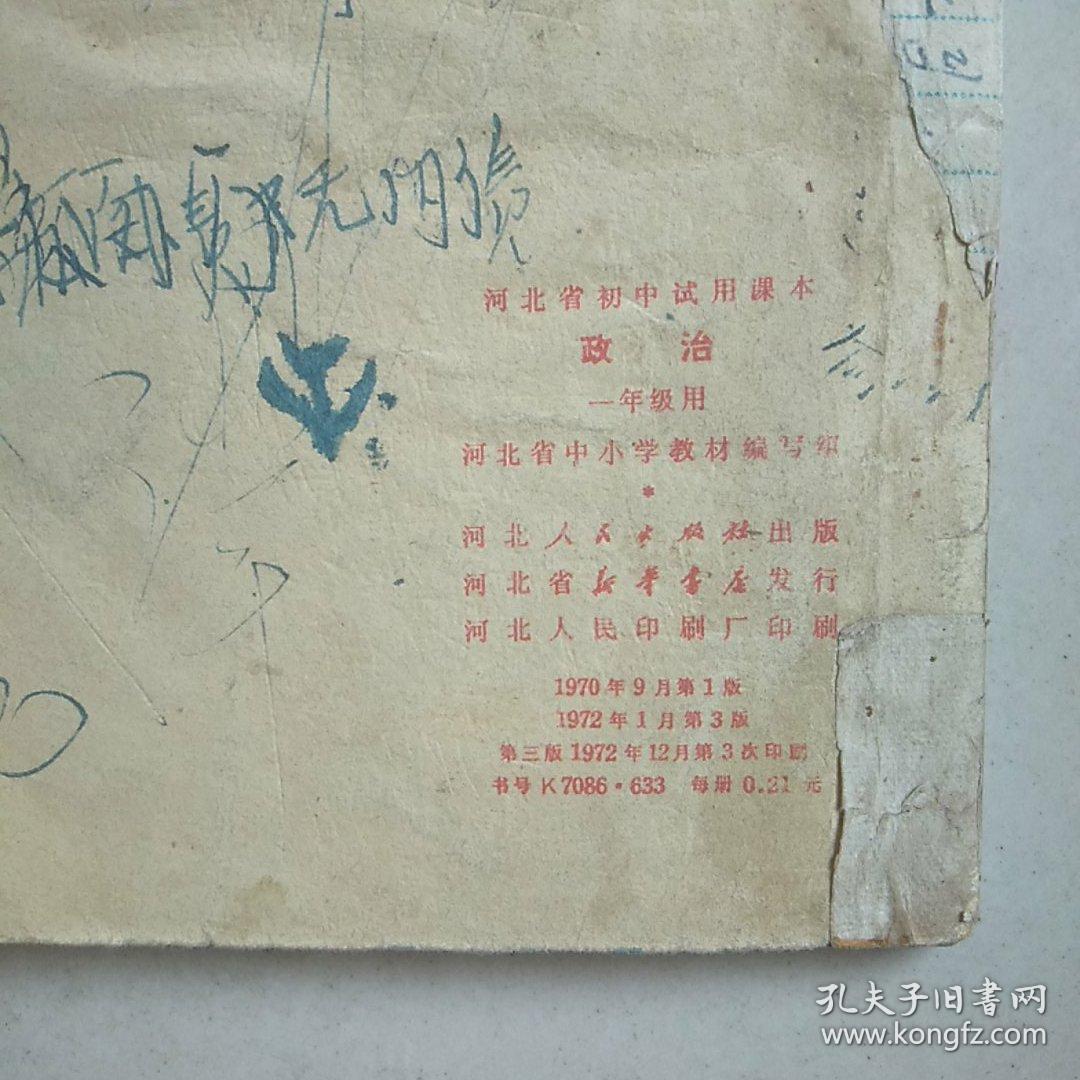 河北省初中试用课本
政 治
一年级用
河北省中小学教材编写组
*
河北人民出版社出版
河北省新华书店发行
河北人民印刷厂印刷
1970年9月第1版
1972年1月第3版
第三版1972年12月第3次印刷
书号K7086·633 每册0.21元
孔夫子旧书网
www.kongfz.com